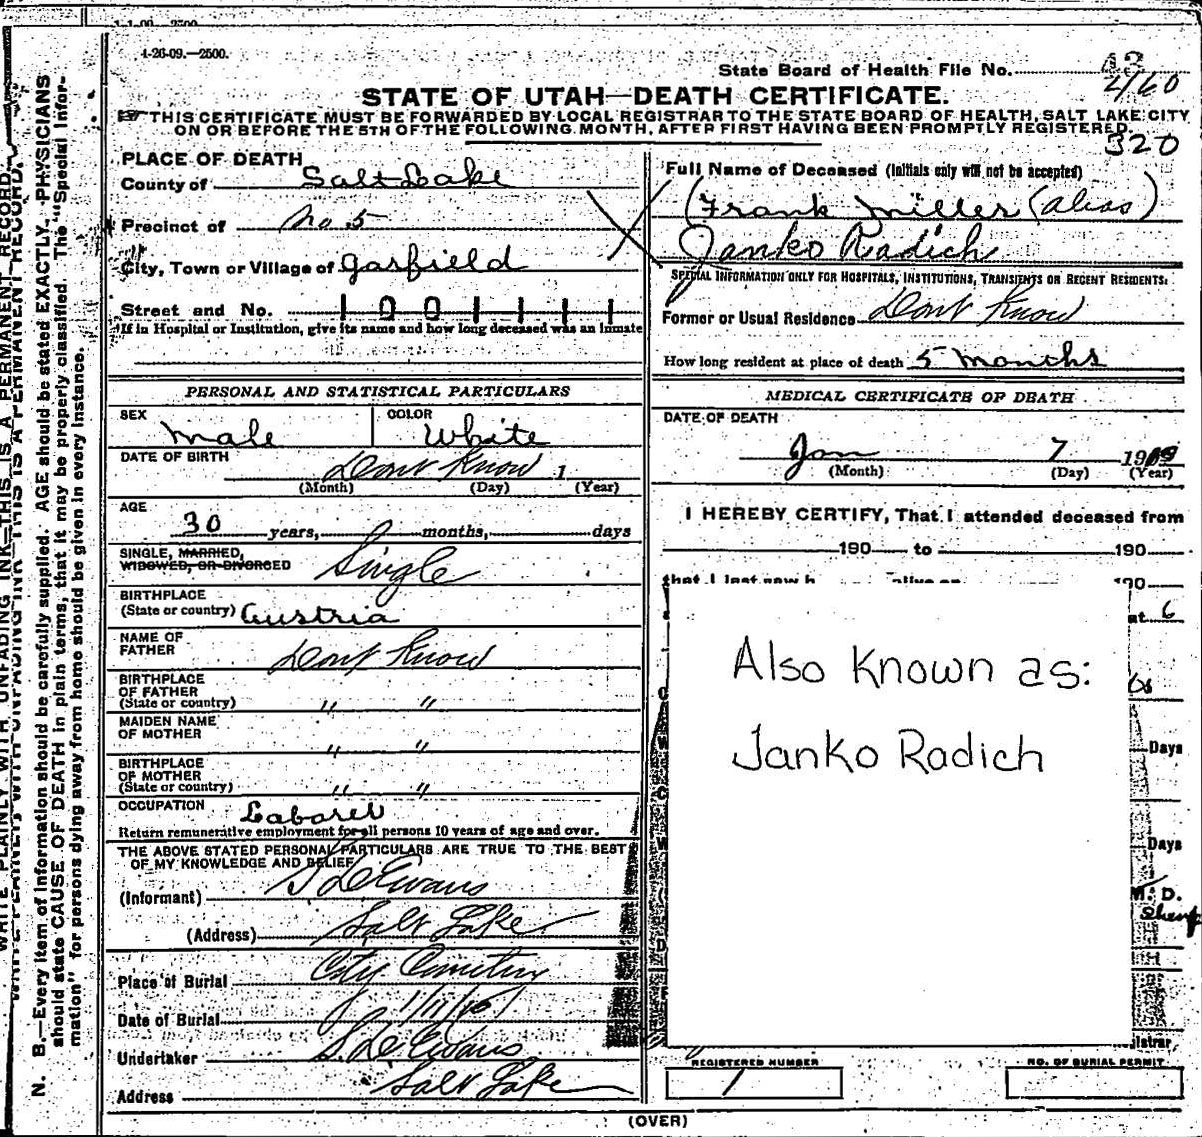 4-26-09.—2500.
State Board of Health File No. 43
4/60
STATE OF UTAH—DEATH CERTIFICATE.
THIS CERTIFICATE MUST BE FORWARDED BY LOCAL REGISTRAR TO THE STATE BOARD OF HEALTH, SALT LAKE CITY
ON OR BEFORE THE 5TH OF THE FOLLOWING MONTH, AFTER FIRST HAVING BEEN PROMPTLY REGISTERED.
320
PLACE OF DEATH
County of Salt Lake
Precinct of No 5
City, Town or Village of Garfield
Street and No.
If in Hospital or Institution, give its name and how long deceased was an inmate
PERSONAL AND STATISTICAL PARTICULARS
SEX Male
COLOR White
DATE OF BIRTH Dont Know 1
(Month) (Day) (Year)
AGE
30 years, months, days
SINGLE, MARRIED,
WIDOWED, OR DIVORCED Single
BIRTHPLACE
(State or country) Austria
NAME OF
FATHER Dont Know
BIRTHPLACE
OF FATHER
(State or country) " "
MAIDEN NAME
OF MOTHER " "
BIRTHPLACE
OF MOTHER
(State or country) " "
OCCUPATION Laborer
Return remunerative employment for all persons 10 years of age and over.
THE ABOVE STATED PERSONAL PARTICULARS ARE TRUE TO THE BEST
OF MY KNOWLEDGE AND BELIEF
(Informant) S D Evans
(Address) Salt Lake
Place of Burial City Cemetery
Date of Burial 1/11/10
Undertaker S. D. Evans
Address Salt Lake
Full Name of Deceased (Initials only will not be accepted)
(Frank Miller (alias)
Janko Radich
SPECIAL INFORMATION ONLY FOR HOSPITALS, INSTITUTIONS, TRANSIENTS OR RECENT RESIDENTS.
Former or Usual Residence Dont Know
How long resident at place of death 5 Months
MEDICAL CERTIFICATE OF DEATH
DATE OF DEATH
Jan 7 1909
(Month) (Day) (Year)
I HEREBY CERTIFY, That I attended deceased from
190 to 190
that I last saw h alive on 190
at 6
Also Known as:
Janko Radich
Days
Days
M. D.
REGISTERED NUMBER
1
NO. OF BURIAL PERMIT
(OVER)
N. B.—Every item of information should be carefully supplied. AGE should be stated EXACTLY. PHYSICIANS
should state CAUSE OF DEATH in plain terms, that it may be properly classified. The "Special Infor-
mation" for persons dying away from home should be given in every instance.
WRITE PLAINLY WITH UNFADING INK—THIS IS A PERMANENT RECORD.